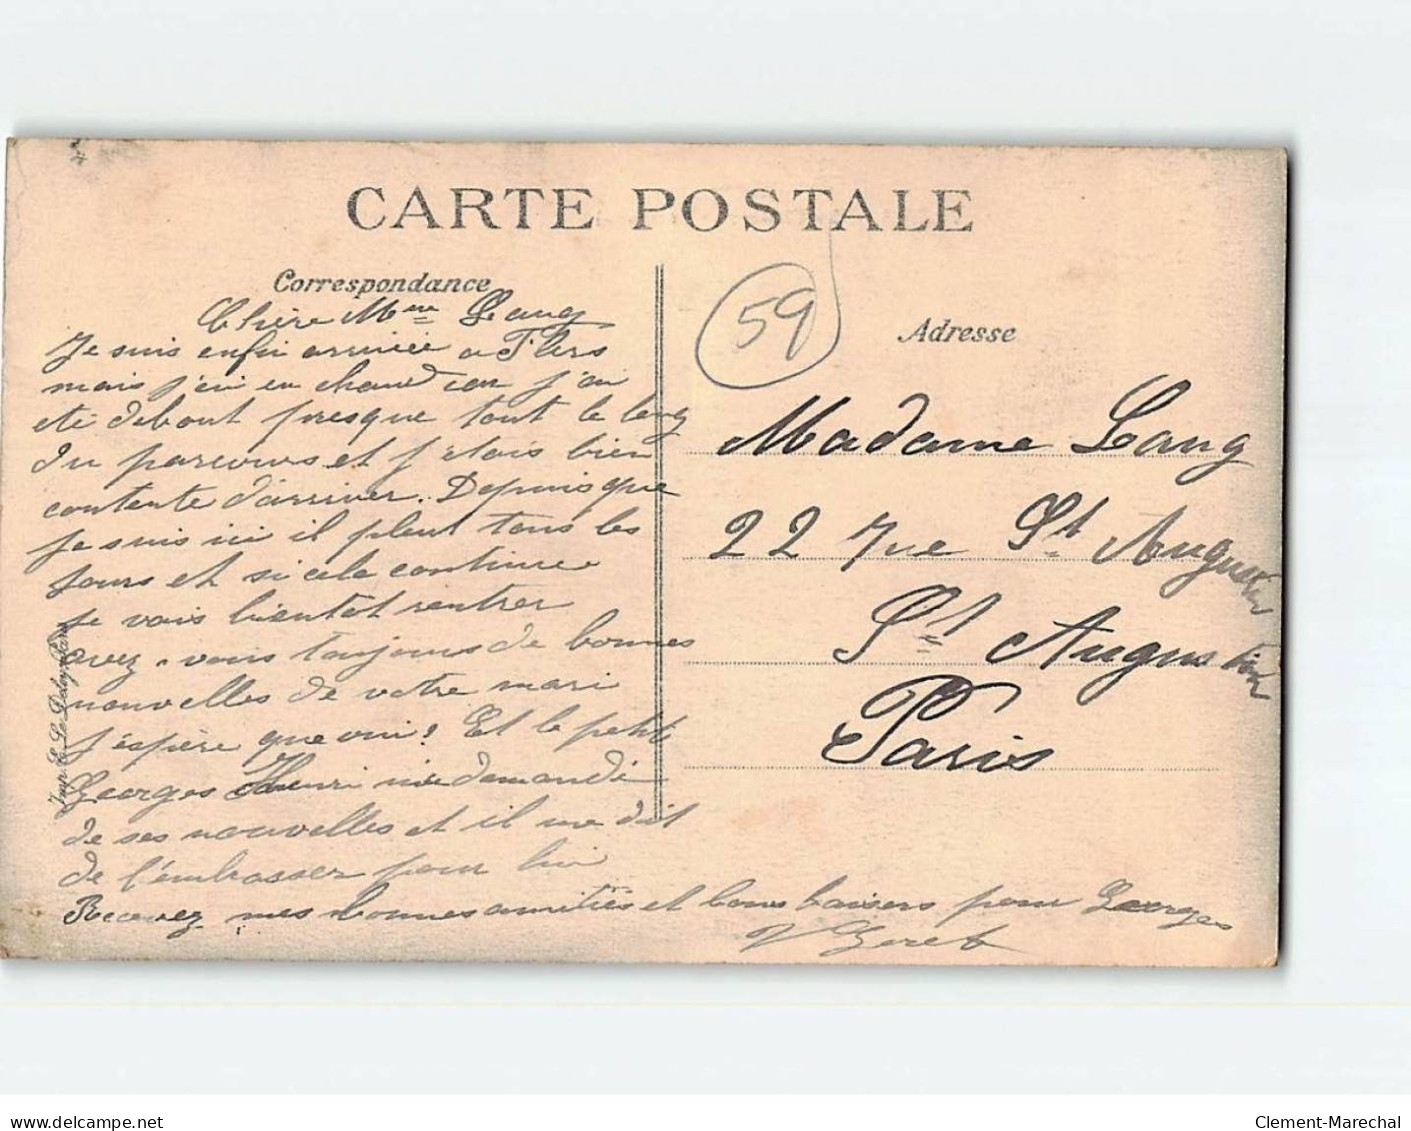 CARTE POSTALE
Correspondance
Chère Mme Lang
Je suis enfin arrivée a Flers
mais j'ai eu chaud car j'ai
eté debout presque tout le long
du parcours et j'étais bien
contente d'arriver. Depuis que
je suis ici il pleut tous les
jours et si cela continue
je vais bientot rentrer
avez-vous toujours de bonnes
nouvelles de votre mari
j'espère que oui? Et le petit
Georges Henri m'a demandé
de ses nouvelles et il me dit
de l'embrasser pour lui
Recevez mes bonnes amitiés et bons baisers pour Georges
59
Adresse
Madame Lang
22 rue St Augustin
St Augustin
Paris
delboutcamp.com
Clement-Marechal